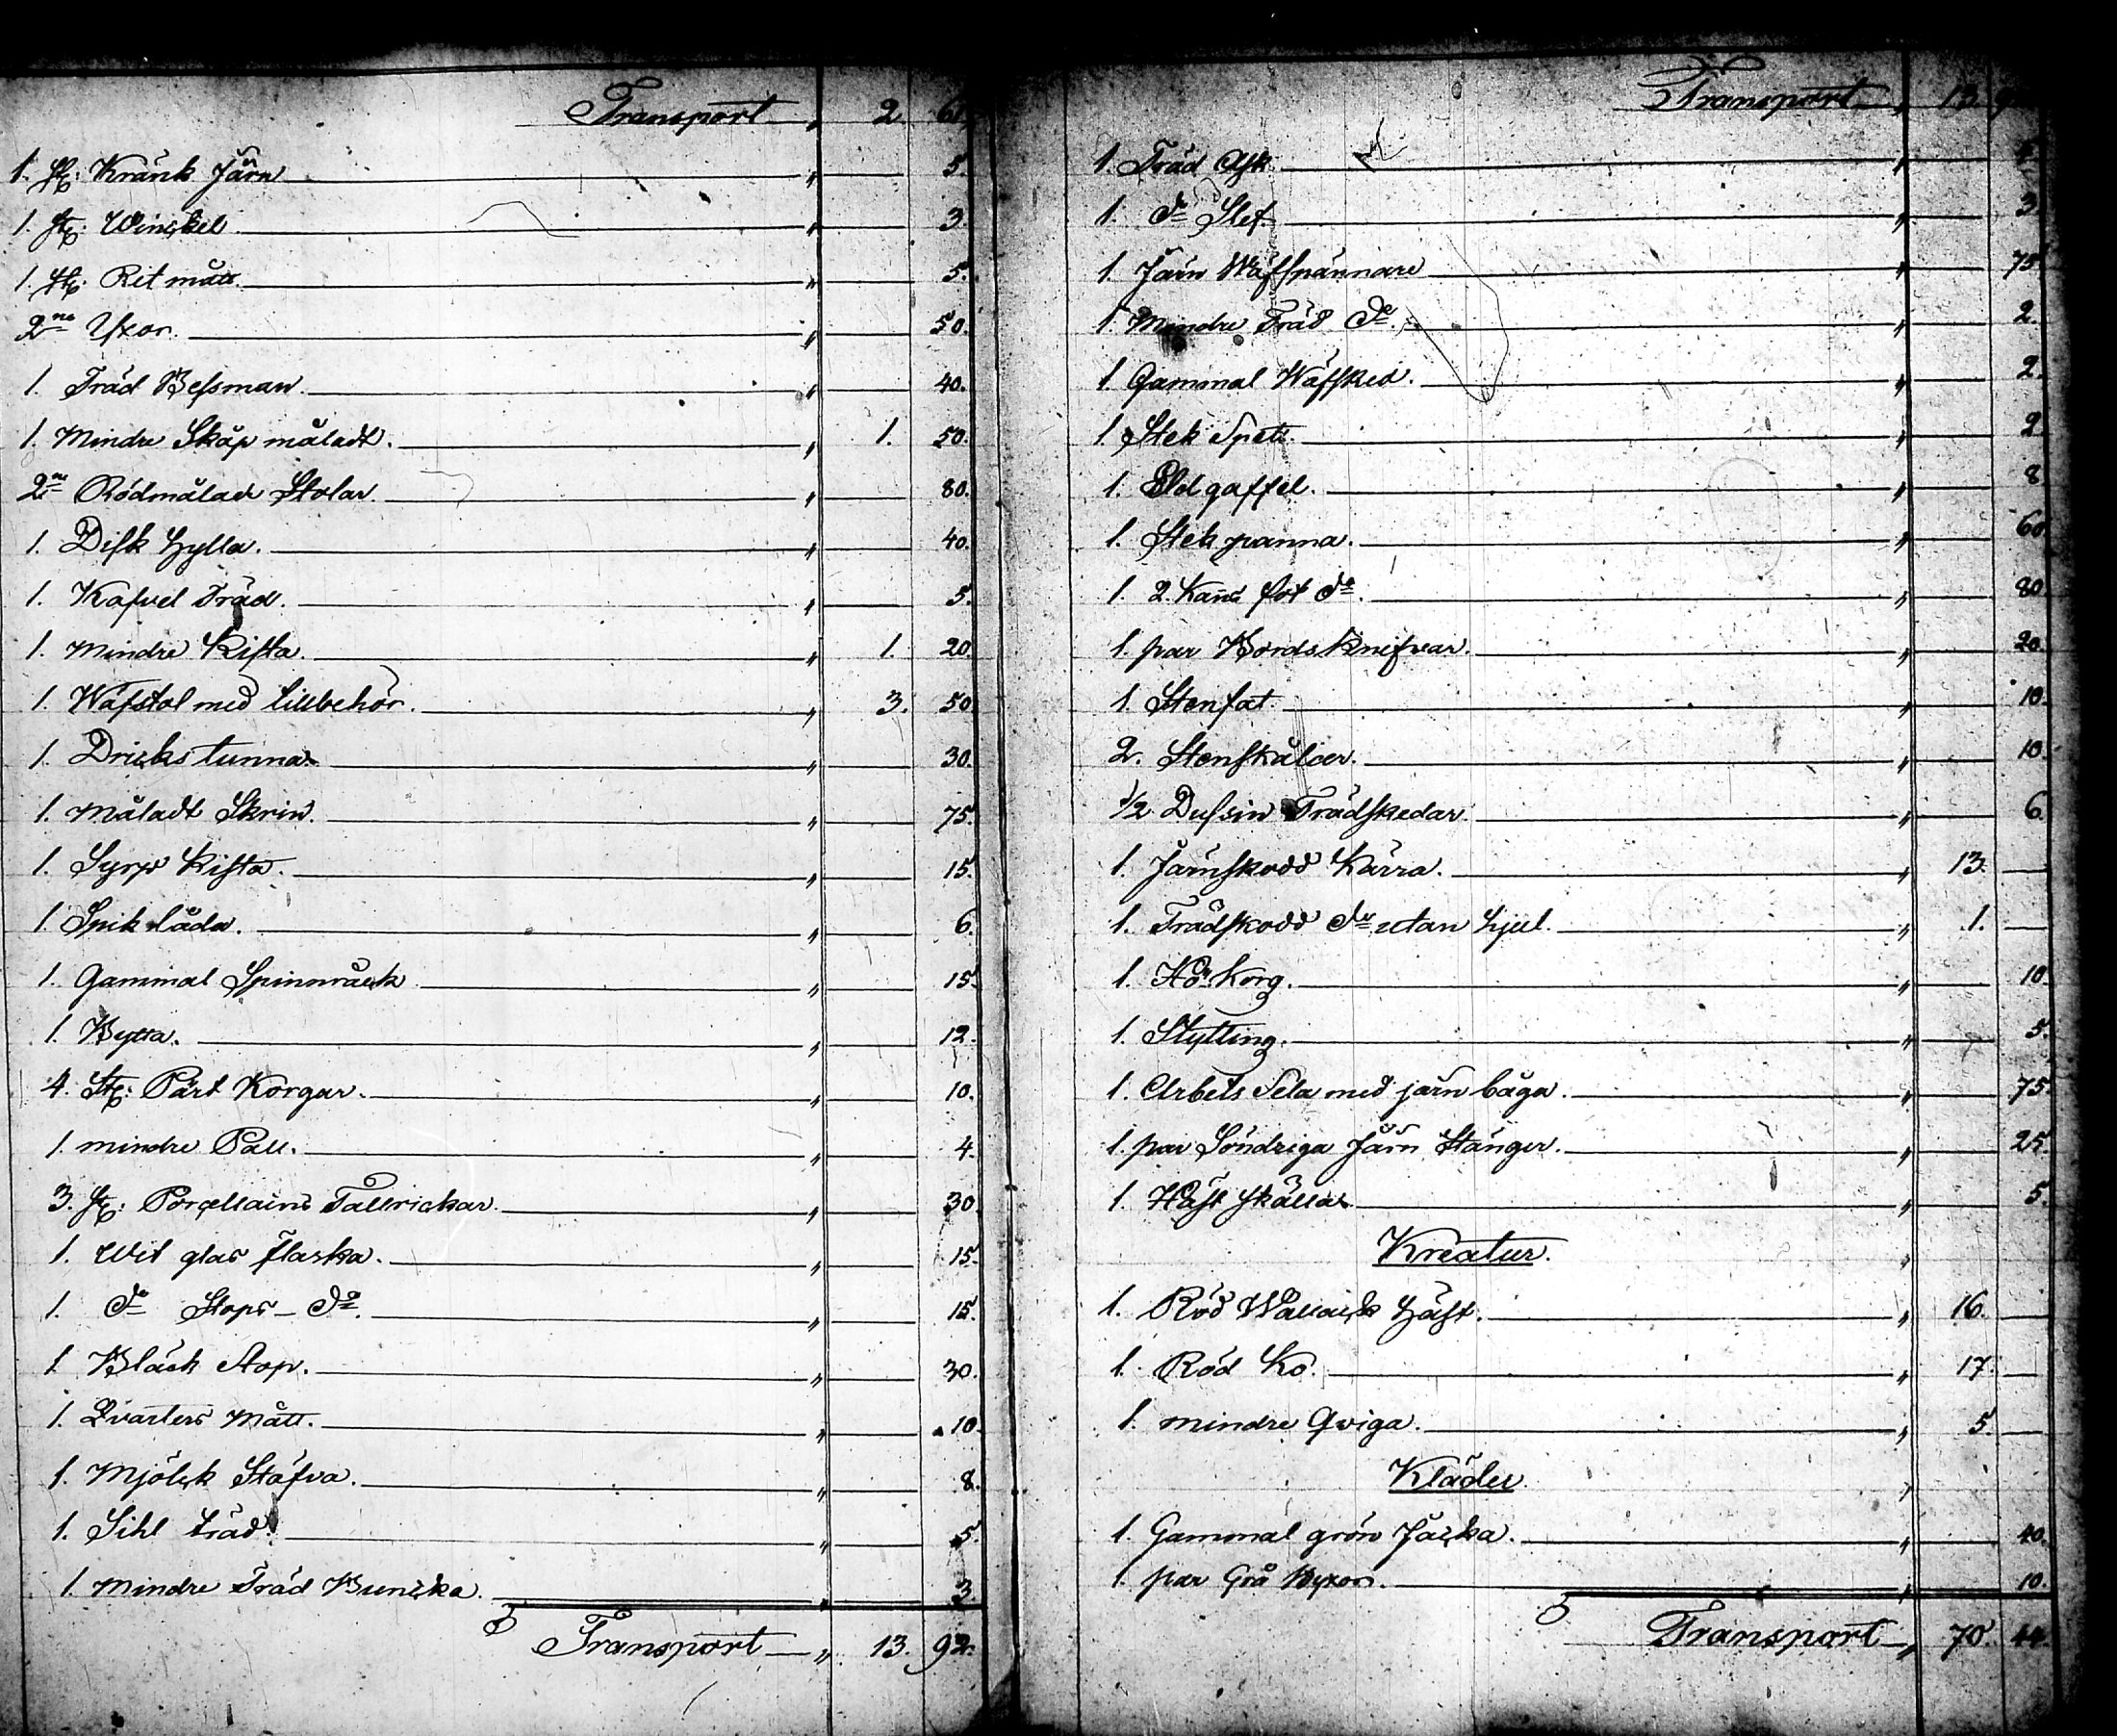 Transport „ 2. 61.
1. st: Kränk Järn „ 5.
1. st: Winckel „ 3.
1. st: Ritmått „ 5.
2ne Yxor „ 50.
1. Träd Bessman „ 40.
1. Mindre Skåp måladt. „ 1. 50.
2ne Rödmålade Stolar „ 80.
1. Disk hylla. „ 40.
1. Kafvel Träd. „ 5.
1. Mindre Kista. „ 1. 20.
1. Wäfstol med tillbehör. „ 3. 50.
1. Dricks tunna „ 30.
1. Måladt Skrin. „ 75.
1. Syrp Kista. „ 15.
1. Spik låda. „ 6.
1. Gammal Spinnråck „ 15.
1. Bytta. „ 12.
4. St: Pärt Korgar. „ 10.
1. mindre Pall. „ 4.
3. st: Porcellains Tallrickar. „ 30.
1. Wit glas flaska. „ 15.
1. do Stops do. „ 15.
1. Bläck Stop. „ 30.
1. Qvarters Mått. „ 10.
1. Mjölck Stäfva. „ 8.
1. Sihl träd. „ 5.
1. Mindre Träd Buncka. „ 3.
Transport „ 13. 92.
Transport „ 13.
1. Träd Ask „
1. do Slef „ 3.
1. Järn Wäfspännare „ 75.
1. Mindre Träd do. „ 2.
1. Gammal Wäfsked. „ 2.
1. Stek Spett. „ 2.
1. Eldgaffel. „ 8.
1. Stekpanna. „ 60.
1. 2. Kans fot do. „ 80.
1. par Bordsknifvar. „ 20.
1. Stenfat „ 10.
2. Stenskålar. „ 10.
1/2 Dussin Trädskedar „ 6.
1. Järnskodd Kärra. „ 13.
1. Trädskodd do utan hjul. „ 1.
1. Hö Korg. „ 10.
1. Stytting. „ 5.
1. Arbets Sela med järn båga. „ 75.
1. par Söndriga Järn Stänger. „ 25.
1. Häst skälla „ 5.
Kreatur. „
1. Röd Wallack häst. „ 16.
1. Röd Ko. „ 17.
1. mindre Qviga. „ 5.
Kläder „
1. Gammal grön Jacka. „ 40.
1. par Grå Byxor. „ 10.
Transport „ 70. 44.